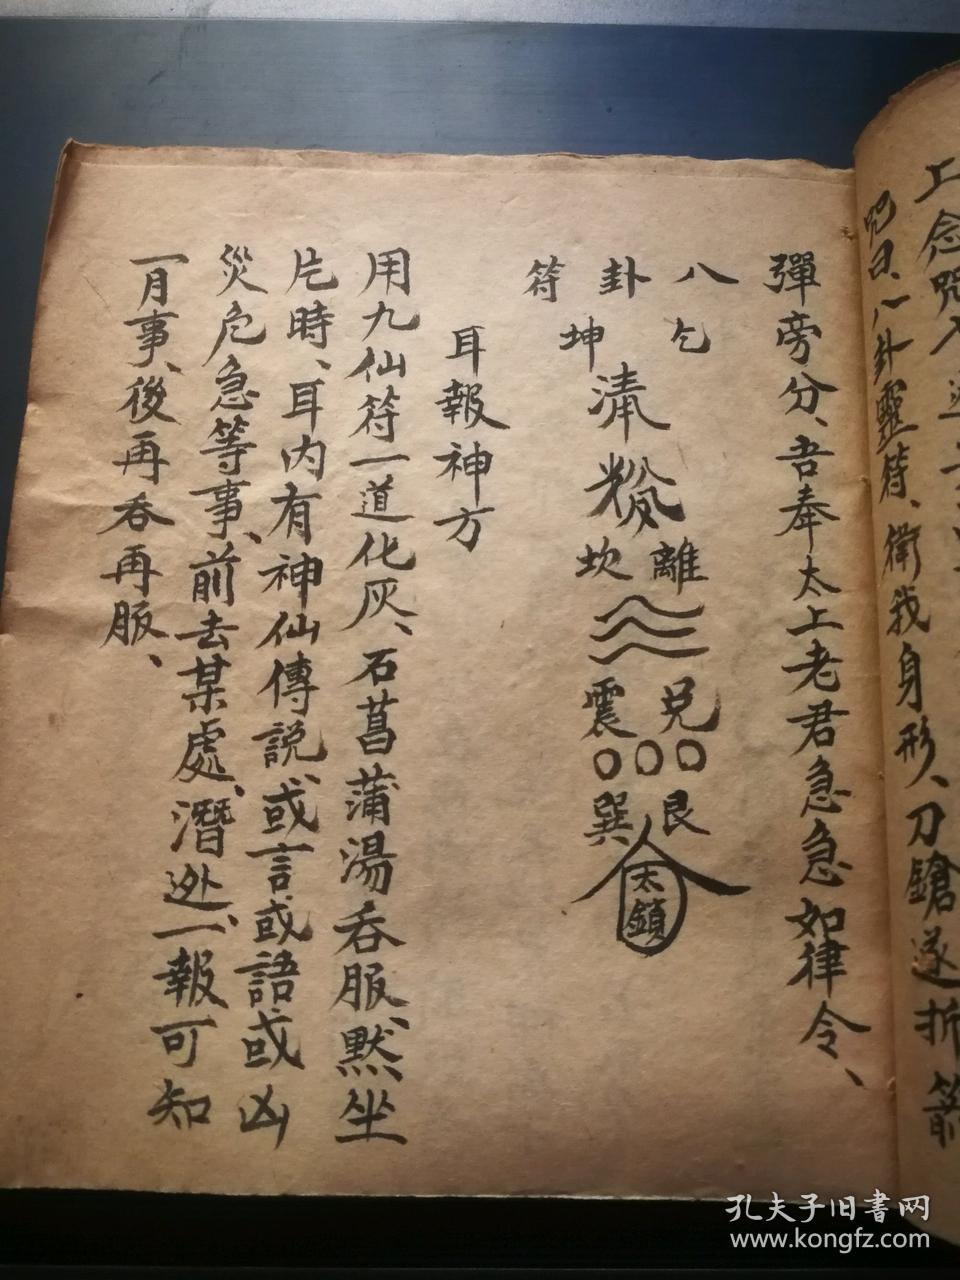 上念咒入
咒曰、八卦靈符、衛我身形、刀鎗遂折箭
彈旁分、吾奉太上老君急急如律令、
八卦符
乞
坤
清
離
坎
兑
震
艮
巽
太鎖
耳報神方
用九仙符一道化灰、石菖蒲湯吞服、默坐
片時、耳内有神仙傳説、或言或語或凶
災危急等事、前去某處、潛迯、一報可知
一月事、後再吞再服、
孔夫子旧书网
www.kongfz.com